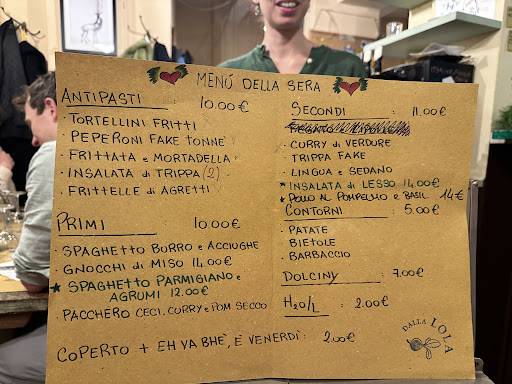 MENÚ DELLA SERA
ANTIPASTI : 10.00€
· TORTELLINI FRITTI
· PEPERONI FAKE TONNE
· FRITTATA e MORTADELLA
· INSALATA di TRIPPA (2)
· FRITTELLE di AGRETTI
PRIMI 10.00€
· SPAGHETTO BURRO e ACCIUGHE
· GNOCCHI di MISO 14.00€
SPAGHETTO PARMIGIANO e
AGRUMI 12.00€
· PACCHERO CECI, CURRY e POM. SECCO
COPERTO + EH VA BHÈ, È VENERDÌ : 2.00€
SECONDI : 11.00€
· CURRY di VERDURE
· TRIPPA FAKE
· LINGUA e SEDANO
INSALATA di LESSO 14.00€
POLLO AL POMPELMO e BASIL 14€
CONTORNI : 5.00€
· PATATE
· BIETOLE
· BARBACCIO
DOLCINY : 7.00€
H2O/L : 2.00€
DALLA LOLA